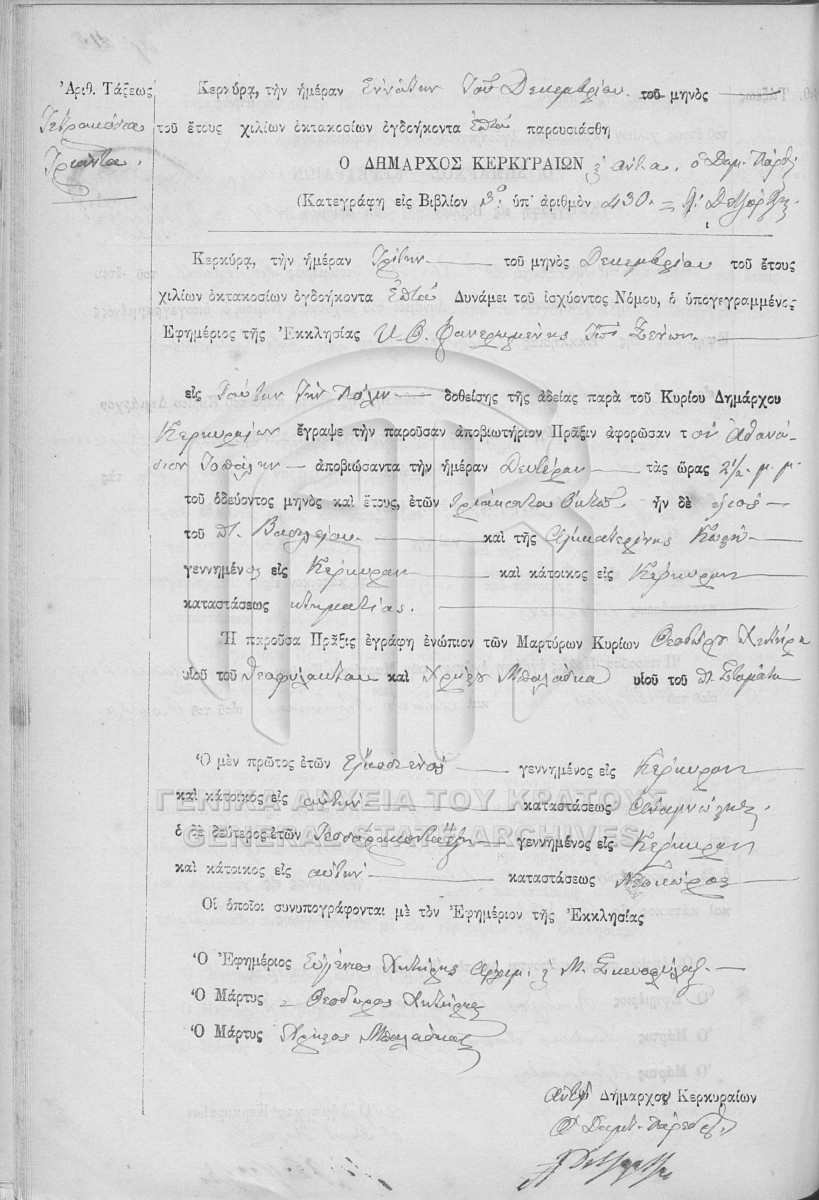 Ἀριθ. Τάξεως
Τετρακόσια
Τριάντα.
Κερκύρᾳ, τὴν ἡμέραν Ἐννάτην τοῦ Δεκεμβρίου τοῦ μηνὸς
τοῦ ἔτους χιλίων ὀκτακοσίων ὀγδοήκοντα ἑπτά παρουσιάσθη
Ο ΔΗΜΑΡΧΟΣ ΚΕΡΚΥΡΑΙΩΝ ὁ Δημ. Πάρεδ.
(Κατεγράφη εἰς Βιβλίον 3ο ὑπ' ἀριθμὸν 430
Κερκύρᾳ, τὴν ἡμέραν Τρίτην τοῦ μηνὸς Δεκεμβρίου τοῦ ἔτους
χιλίων ὀκτακοσίων ὀγδοήκοντα ἑπτά Δυνάμει τοῦ ἰσχύοντος Νόμου, ὁ ὑπογεγραμμένος
Ἐφημέριος τῆς Ἐκκλησίας Υ. Θ. Φανερωμένης τῶν Ξένων
εἰς ταύτην τὴν πόλιν δοθείσης τῆς ἀδείας παρὰ τοῦ Κυρίου Δημάρχου
Κερκυραίων ἔγραψε τὴν παροῦσαν ἀποβιωτήριον Πρᾶξιν ἀφορῶσαν τὸν Ἀθανά-
σιον Τοπάλην ἀποβιώσαντα τὴν ἡμέραν Δευτέραν τὰς ὥρας 2½ μ. μ.
τοῦ ὁδεύοντος μηνὸς καὶ ἔτους, ἐτῶν τριάκοντα ὀκτώ. ἦν δὲ υἱὸς
τοῦ π. Βασιλείου καὶ τῆς Αἰκατερίνης
γεννημένος εἰς Κέρκυραν καὶ κάτοικος εἰς Κέρκυραν
καταστάσεως κτηματίας.
Ἡ παροῦσα Πρᾶξις ἐγράφη ἐνώπιον τῶν Μαρτύρων Κυρίων Θεοδώρου Χυτήρη
υἱοῦ τοῦ Θεοφυλάκτου καὶ Χρήστου Μπαλάσκα υἱοῦ τοῦ π. Σταμάτη
Ὁ μὲν πρῶτος ἐτῶν εἴκοσι ἐννέα γεννημένος εἰς Κέρκυραν
καὶ κάτοικος εἰς αὐτὴν καταστάσεως
ὁ δὲ δεύτερος ἐτῶν Τεσσαράκοντα ἕξ γεννημένος εἰς Κέρκυραν
καὶ κάτοικος εἰς αὐτὴν καταστάσεως Νεωκόρος
Οἱ ὁποῖοι συνυπογράφονται μὲ τὸν Ἐφημέριον τῆς Ἐκκλησίας
Ὁ Ἐφημέριος Εὐγένιος Χυτήρης Ἀρχιμ. & Μ. Σκευοφύλαξ
Ὁ Μάρτυς Θεόδωρος Χυτήρης
Ὁ Μάρτυς Χρῆστος Μπαλάσκας
ἀντὶ Δήμαρχου Κερκυραίων
Ὁ Δημ. Πάρεδρος
ΓΕΝΙΚΑ ΑΡΧΕΙΑ ΤΟΥ ΚΡΑΤΟΥΣ
GENERAL STATE ARCHIVES